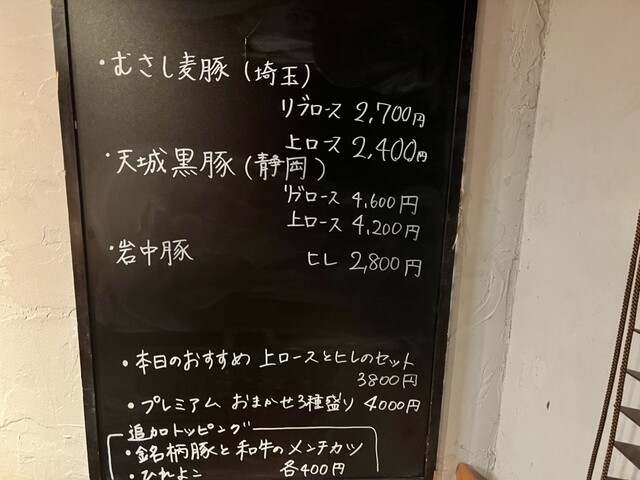 ・むさし麦豚(埼玉)
リブロース 2,700円
上ロース 2,400円
・天城黒豚(静岡)
リブロース 4,600円
上ロース 4,200円
・岩中豚 ヒレ 2,800円
・本日のおすすめ 上ロースとヒレのセット
3800円
・プレミアム おまかせ3種盛り 4000円
追加トッピング
・銘柄豚と和牛のメンチカツ
・ひれよこ 各400円